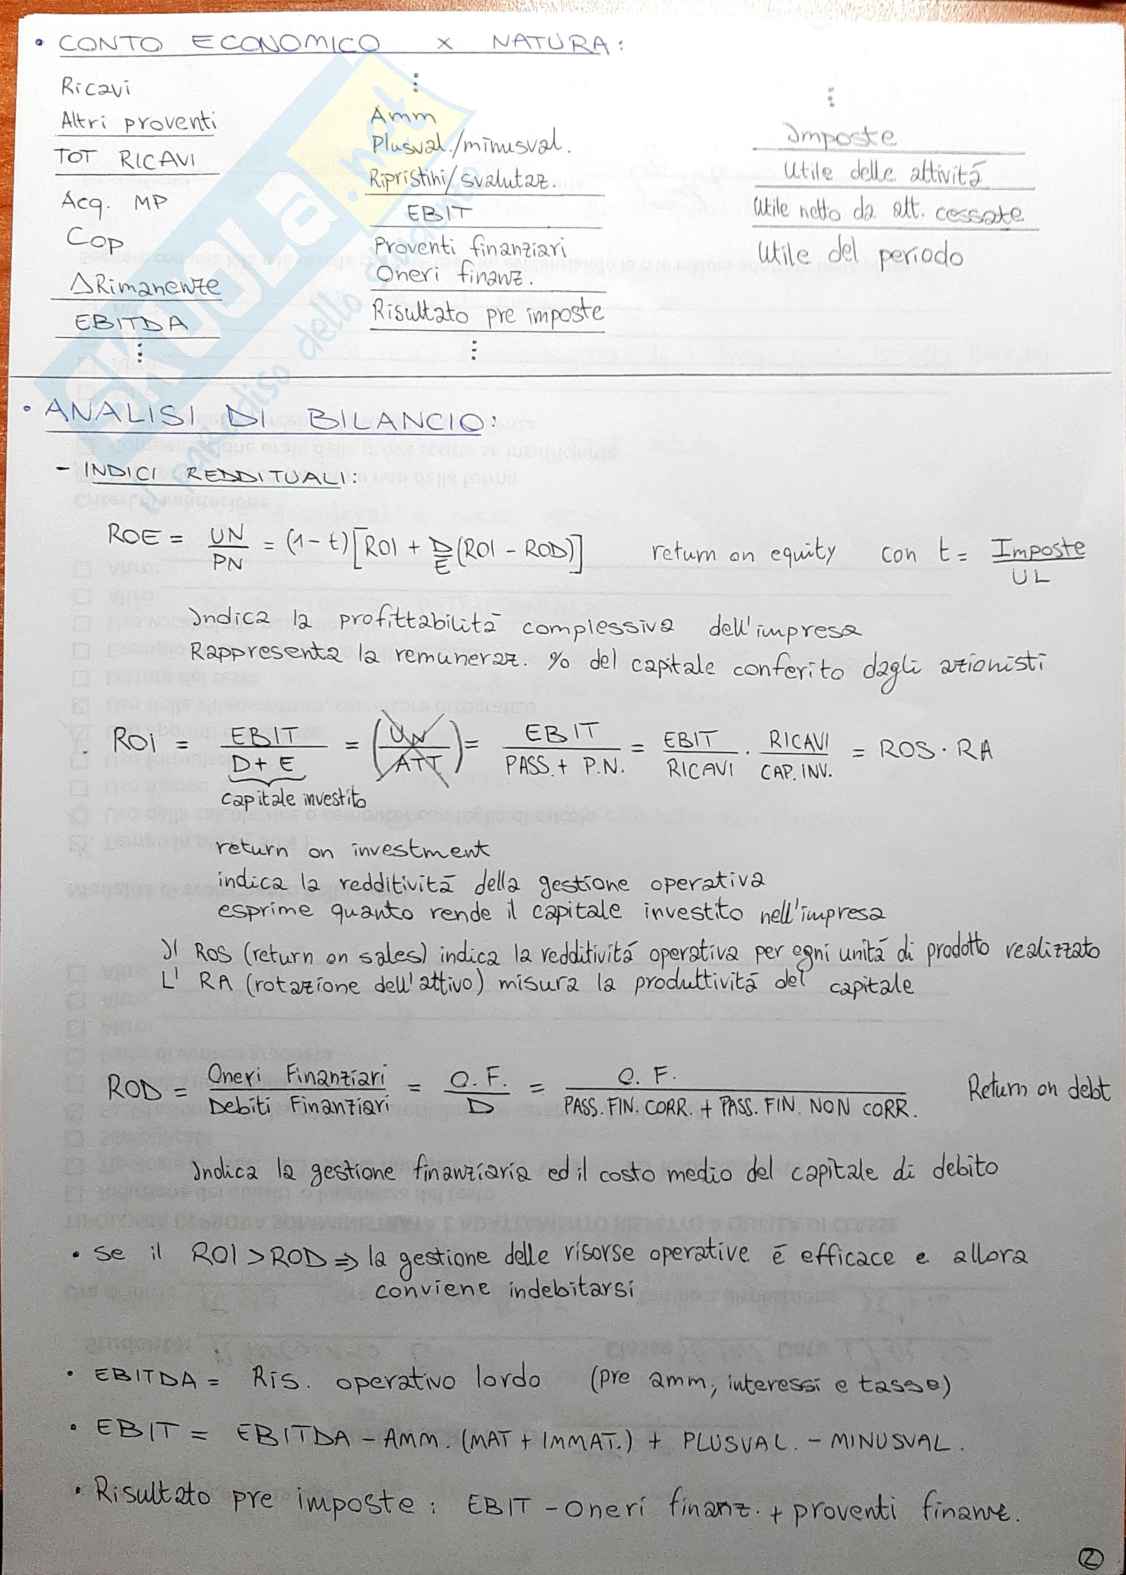 • CONTO ECONOMICO x NATURA:
Ricavi
Altri proventi
TOT RICAVI
Acq. MP
Cop
ΔRimanenze
EBITDA
⋮
⋮
Amm
Plusval./minusval.
Ripristini/svalutaz.
EBIT
Proventi finanziari
Oneri finanz.
Risultato pre imposte
⋮
⋮
Imposte
Utile delle attività
Utile netto da att. cessate
Utile del periodo
SKUOLA.net
il paradiso dello studente
• ANALISI DI BILANCIO:
- INDICI REDDITUALI:
ROE = UN/PN = (1-t)[ROI + D/E(ROI - ROD)] return on equity con t = Imposte/UL
Indica la profittabilità complessiva dell'impresa
Rappresenta la remuneraz. % del capitale conferito dagli azionisti
ROI = EBIT/(D+E) = (UN/ATT) = EBIT/(PASS. + P.N.) = EBIT/RICAVI · RICAVI/CAP. INV. = ROS · RA
capitale investito
return on investment
indica la redditività della gestione operativa
esprime quanto rende il capitale investito nell'impresa
Il ROS (return on sales) indica la redditività operativa per ogni unità di prodotto realizzato
L' RA (rotazione dell'attivo) misura la produttività del capitale
ROD = Oneri Finanziari/Debiti Finanziari = O.F./D = O.F./(PASS. FIN. CORR. + PASS. FIN. NON CORR.) Return on debt
Indica la gestione finanziaria ed il costo medio del capitale di debito
• Se il ROI > ROD ⇒ la gestione delle risorse operative è efficace e allora
conviene indebitarsi
• EBITDA = Ris. operativo lordo (pre amm, interessi e tasse)
• EBIT = EBITDA - AMM. (MAT + IMMAT.) + PLUSVAL. - MINUSVAL.
• Risultato pre imposte: EBIT - Oneri finanz. + proventi finanz.
2